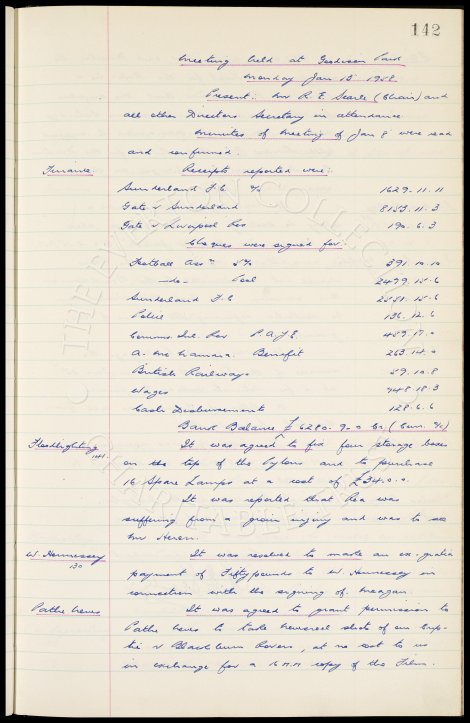 142
Meeting held at Goodison Park
Monday Jan 13 1958
Present: Mr R. E. Searle (Chair) and
all other Directors Secretary in attendance
Minutes of meeting of Jan 8 were read
and confirmed.
Finance. Receipts reported were:
Sunderland F.C. % 1629-11.11
Gate v Sunderland 8153.11.3
Gate v Liverpool Res 190.6.3
Cheques were signed for:
Football Assn 5% 391.10.10
-do- Pool 2499.15.6
Sunderland F.C 2551.15.6
Police 136.12.6
Comms. Inl. Rev P.A.Y.E. 459.17.0
A. Benefit 263.14.0
British Railways 59.10.8
Wages 948.18.3
Cash Disbursements 128.6.6
Bank Balance £6280.9.0 Cr. (Curr. a/c)
Floodlighting It was agreed to fix four storage boxes
141
on the top of the Pylons and to purchase
16 Spare Lamps at a cost of £34.0.0.
It was reported that Rea was
suffering from a groin injury and was to see
Mr Heron.
W. Hennessey It was resolved to make an ex-gratia
130
payment of Fifty pounds to W. Hennessey in
connection with the signing of Meagan.
Pathe News It was agreed to grant permission to
Pathe News to take newsreel shots of our Cup-
tie v Blackburn Rovers, at no cost to us
in exchange for a 16 M.M copy of the Film.
THE EVERTON COLLECTION
CHARITABLE TRUST